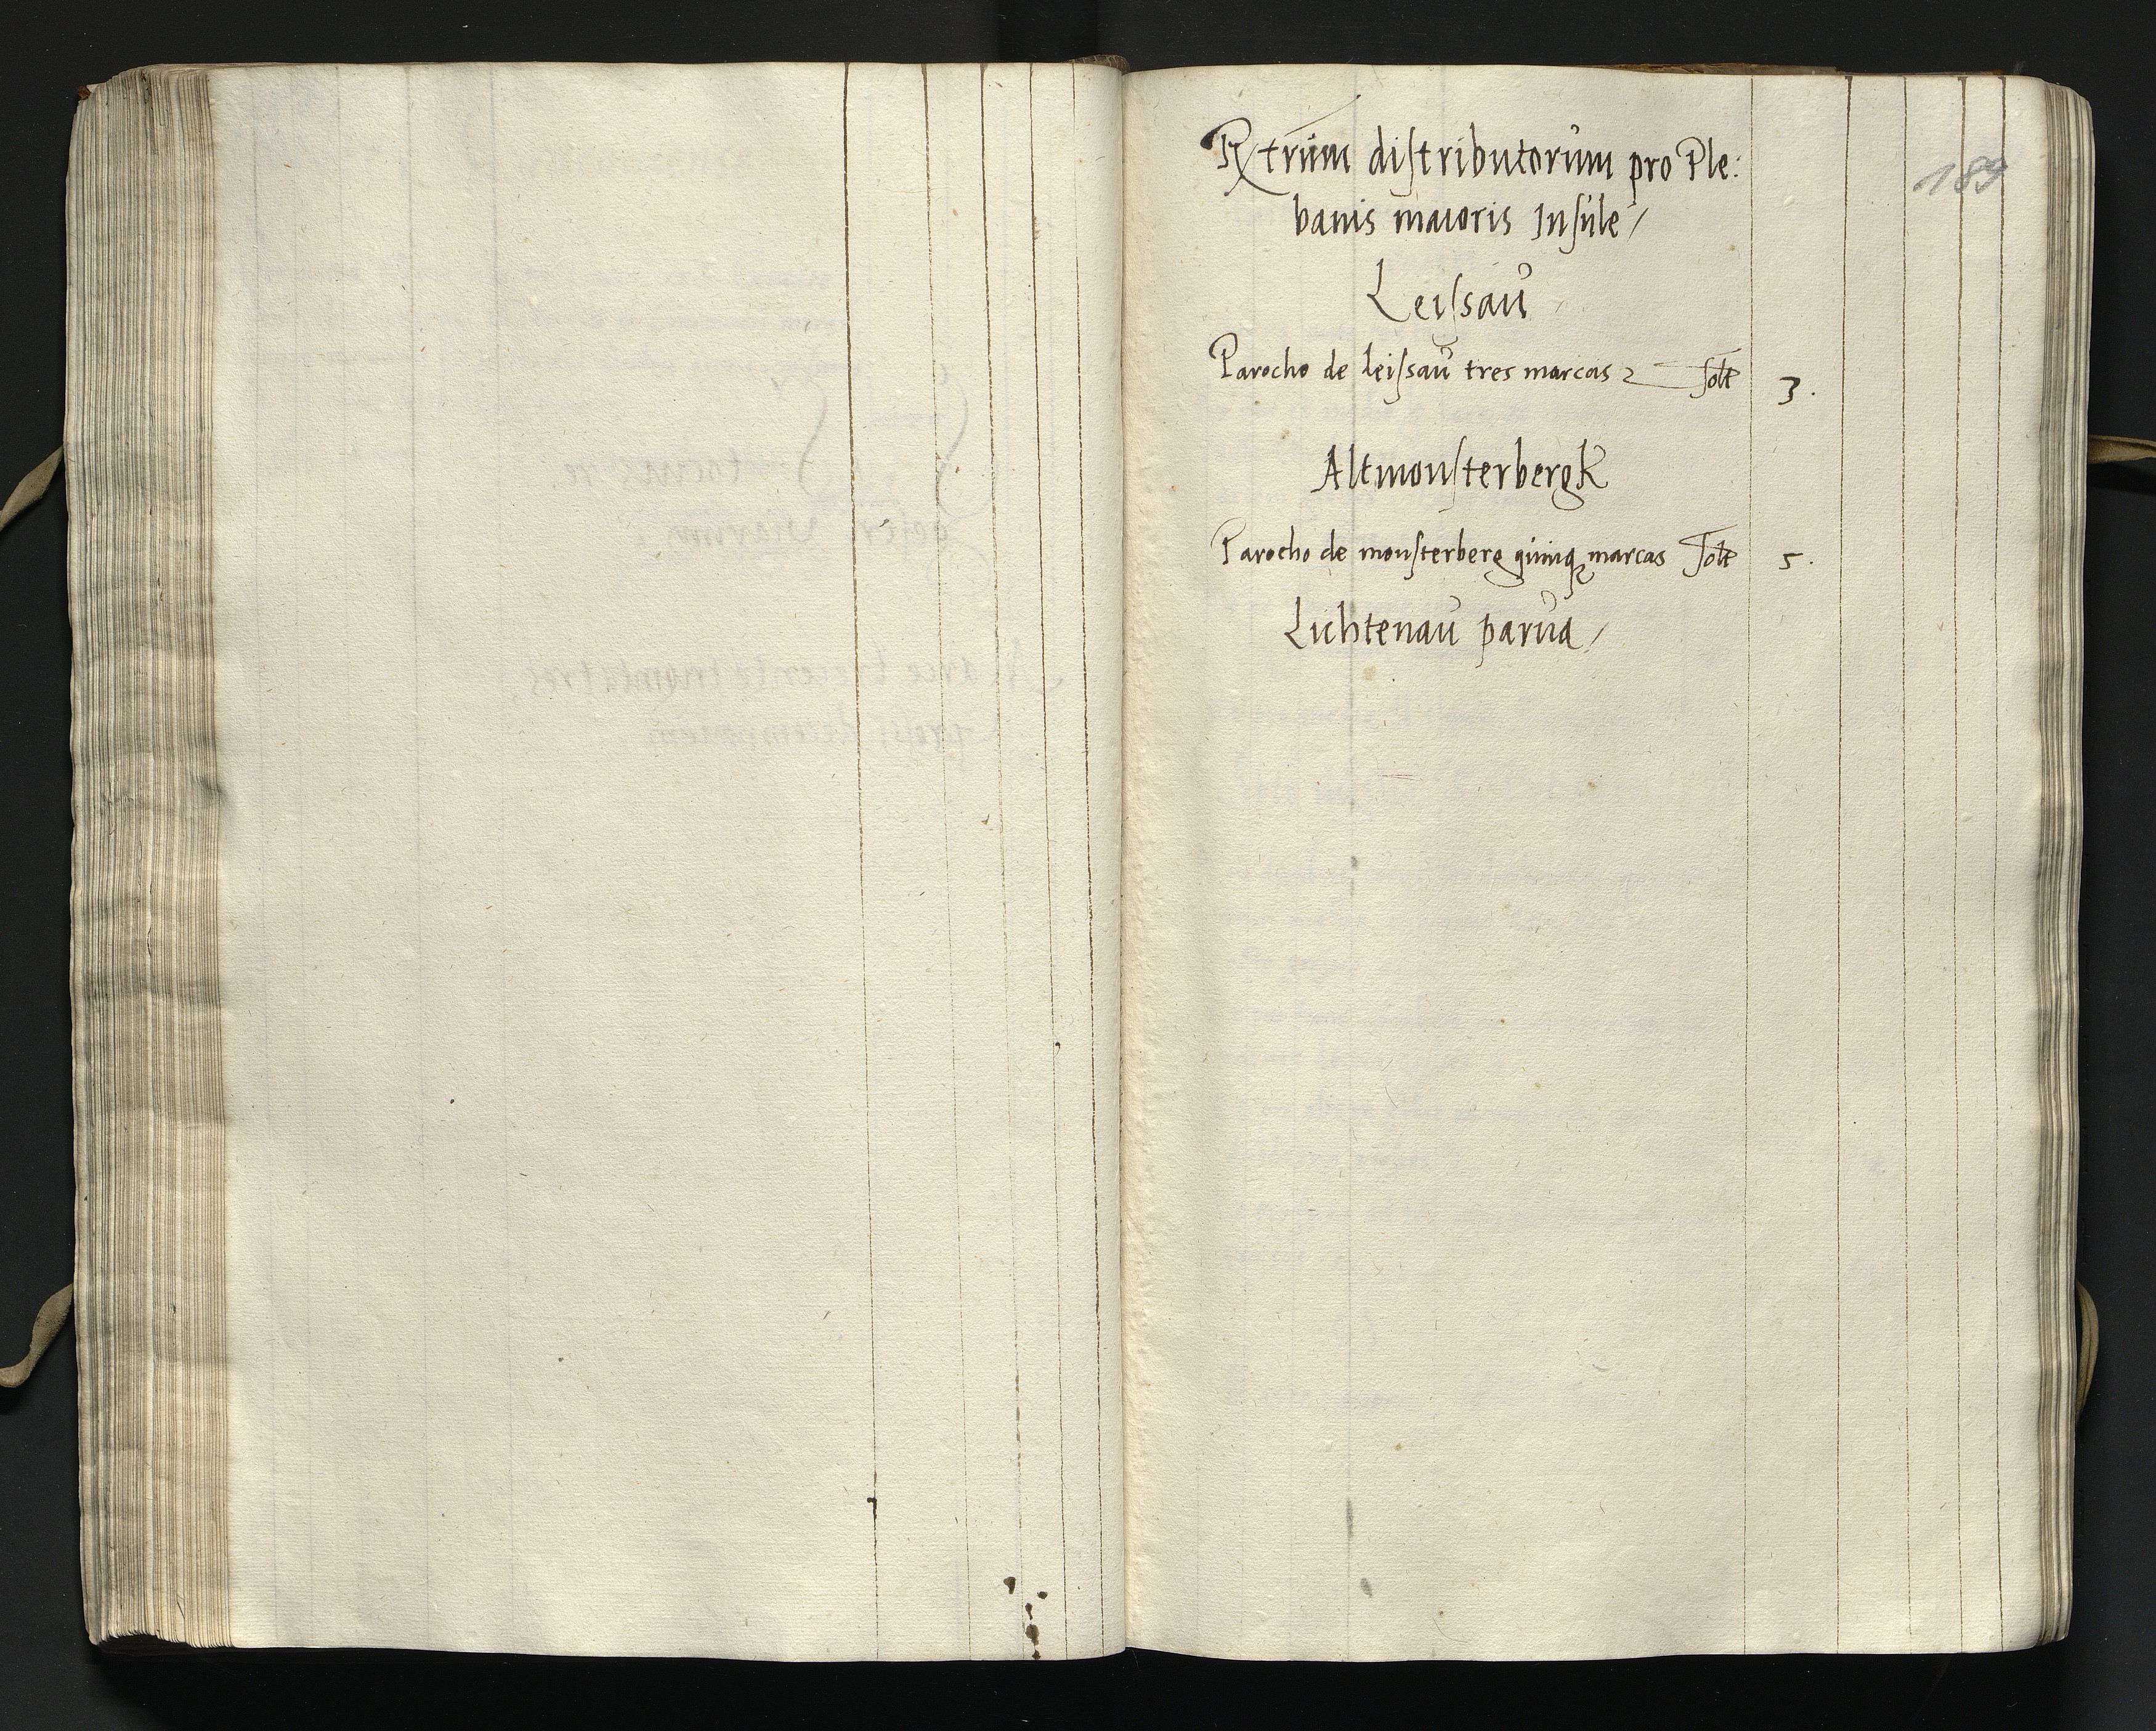 189
Rx̄trum distributorum pro Ple:
banis maioris Insule /
Leissau
Parocho de leissau tres marcas solt 3.
Altmonsterbergk
Parocho de monsterberg quinqꝫ marcas solt 5.
Lichtenau parua /